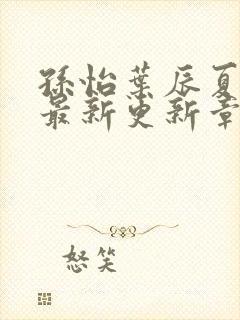 孫怡葉辰夏
最新更新章
怒笑